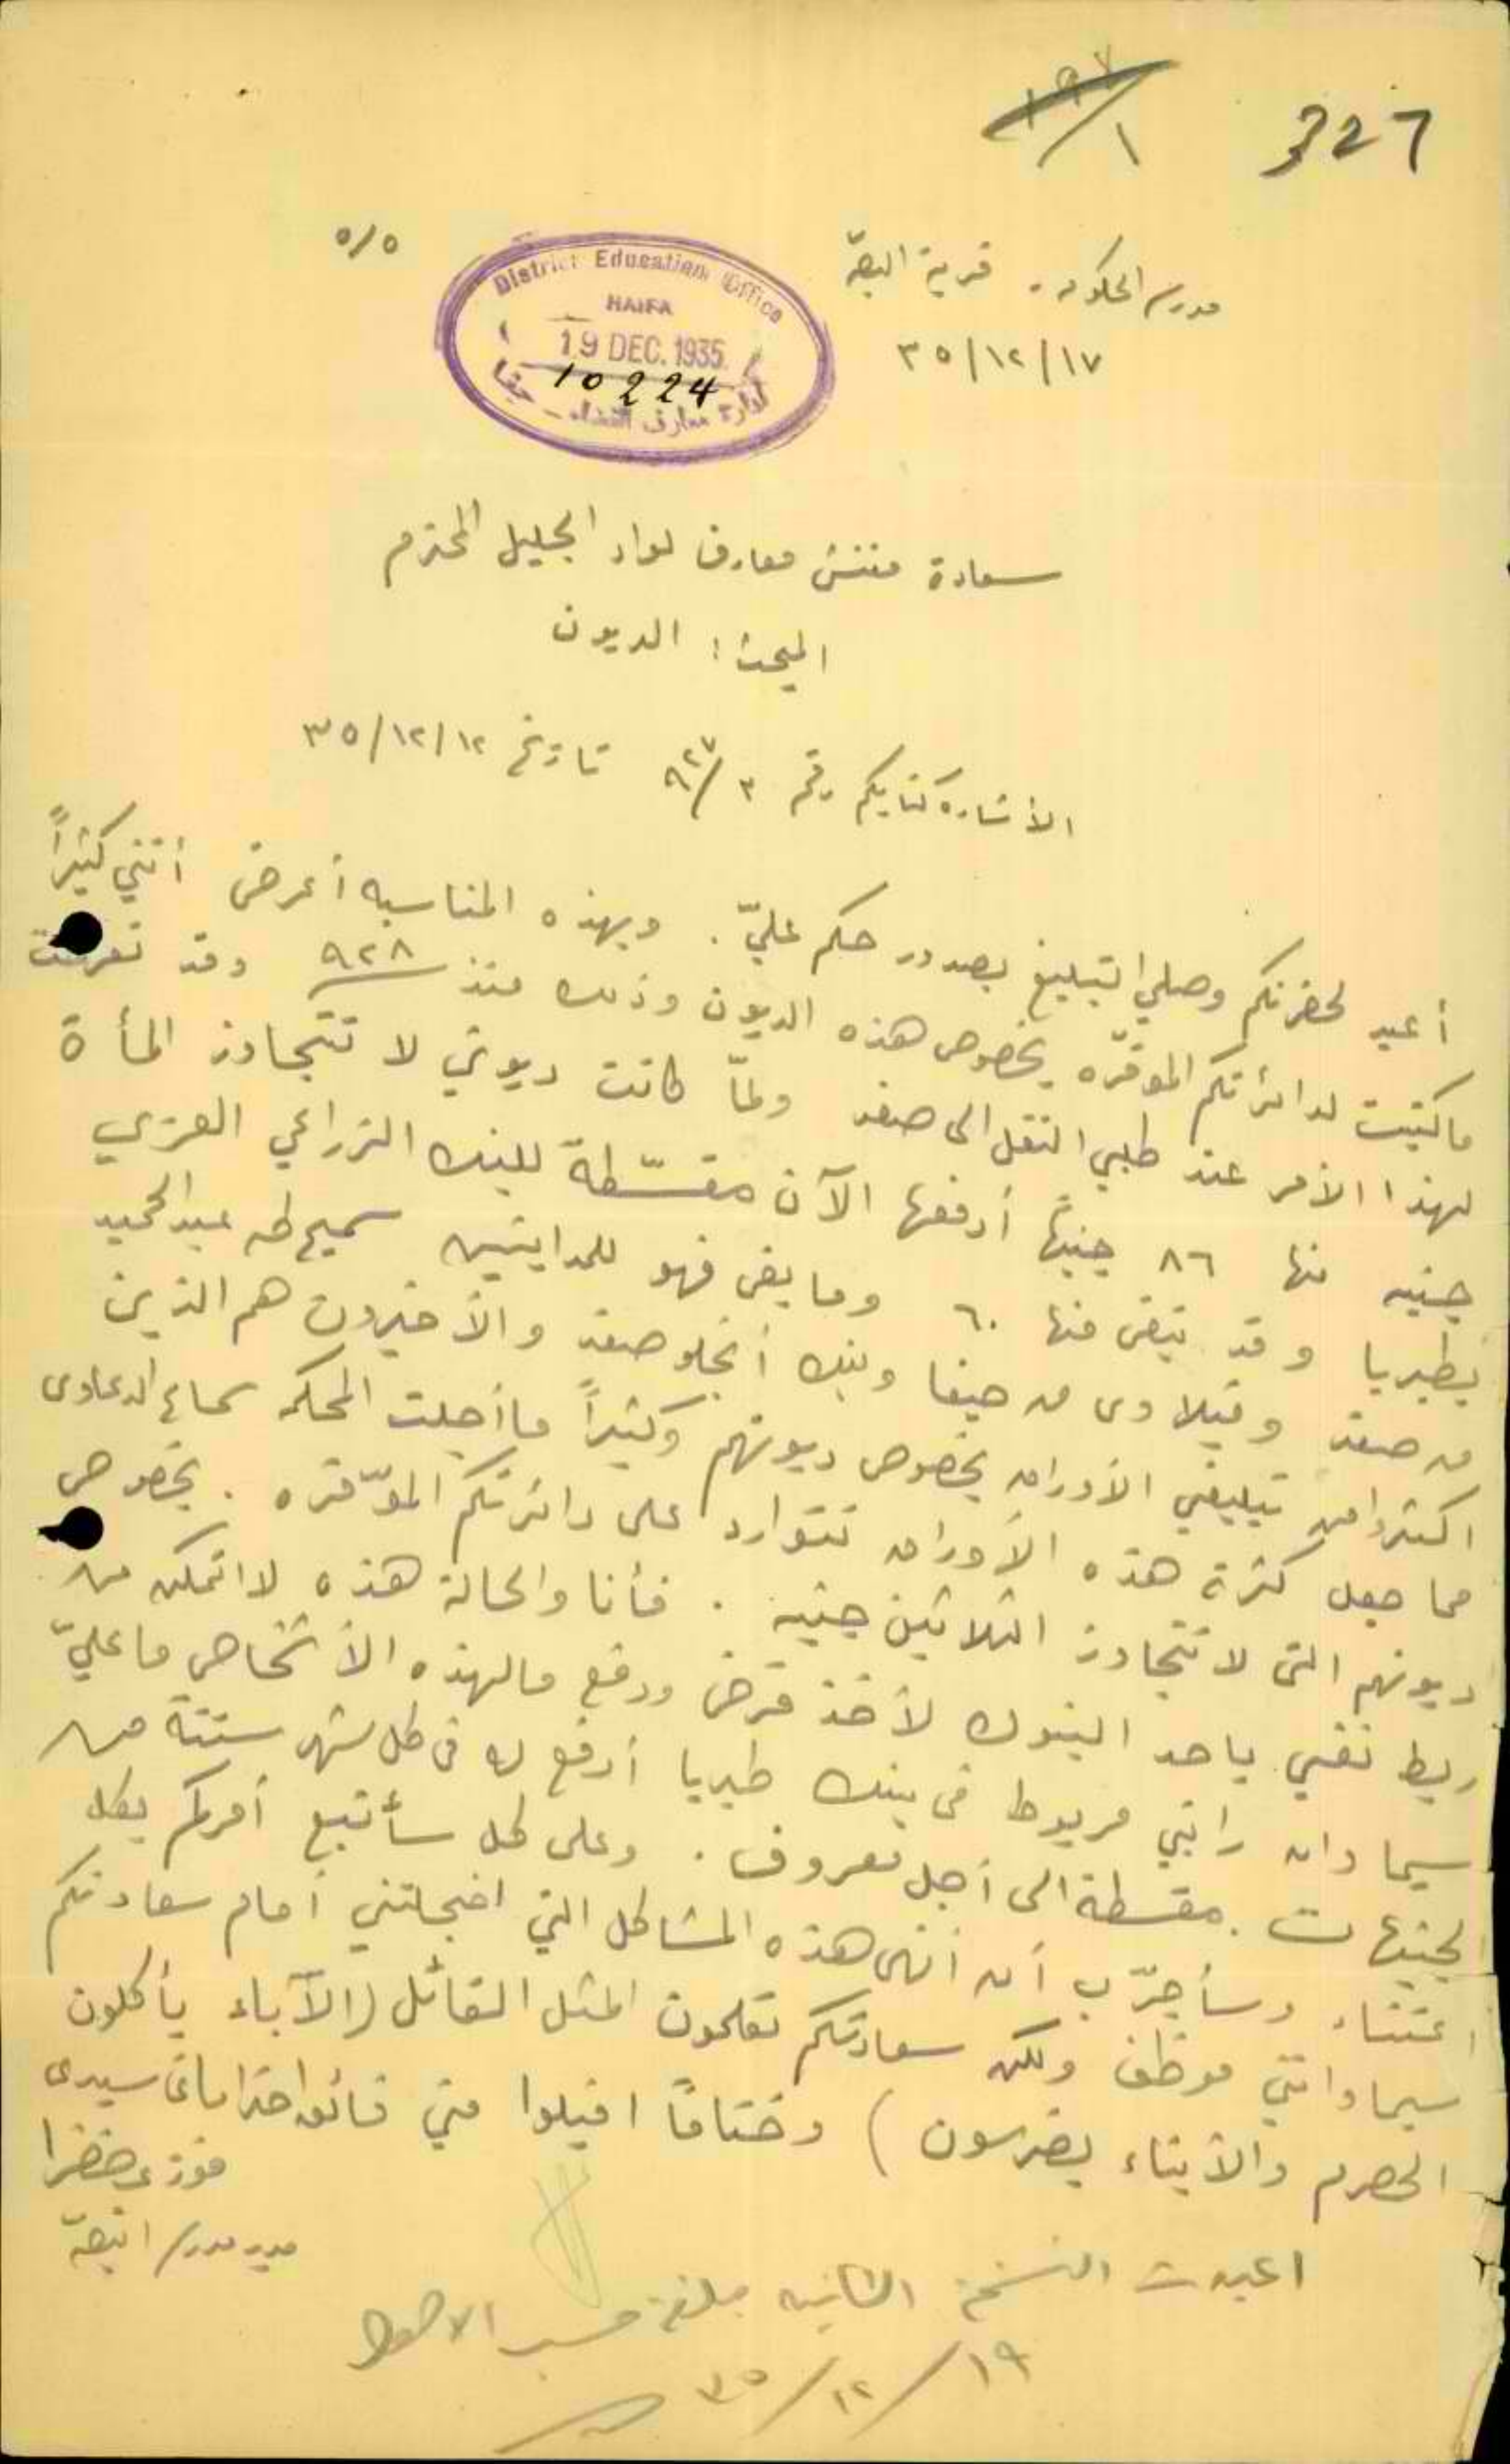 327
١
٥/٥
District Education Office
HAIFA
19 DEC. 1935
10224
ادارة معارف القضاء - حيفا
مدرسة الحكومه . قرية البصّة
٣٥/١٢/١٧
سعادة مفتش معارف لواء الجليل المحترم
المبحث : الديون
الأشارة كتابكم رقم ٩٢٧/٣ تاريخ ٣٥/١٢/١٢
أعيد لحضرتكم وصلي التبليغ بصدور حكم عليّ . وبهذه المناسبه أعرض أنني كثيراً
ما كتبت لدائرتكم الموقّره بخصوص هذه الديون وذلك منذ ٩٢٨ وقد تعرضت
لهذا الأمر عند طلبي النقل الى صفد ولمّا كانت ديوني لا تتجاوز المأة
جنيه منها ٨٦ جنيهًا أدفعها الآن مقسّطة للبنك الزراعي العربي
بطبريا وقد تبقى منها ٦٠ وما بقى فهو للمداينين سميح طه عبد الحميد
من صفد وقيلاوى من حيفا وبنك أنجلو صفد والأخيرون هم الذين
اكثروا من تبليغي الأوراق بخصوص ديونهم وكثيراً ما أجلت المحكمه سماع الدعاوى
مما جعل كثرة هذه الأوراق تتوارد على دائرتكم الموّقره . بخصوص
ديونهم التى لا تتجاوز الثلاثين جنيه . فأنا والحالة هذه لا اتمكن من
ربط نفسي باحد البنوك لأخذ قرض ودفع ما لهذه الأشخاص ما عليّ
سيما وان راتبي مربوط في بنك طبريا أدفع له في كل شهر ستتة من
الجنيهات مقسطة الى أجل معروف . وعلى كل سأتبع أمركم بكل
اعتناء وسأجرّب أن أنهى هذه المشاكل التي اخجلتني أمام سعادتكم
سيما وانني موظف ولكن سعادتكم تعلمون المثل القائل (الآباء يأكلون
الحصرم والأبناء يضرسون ) وختامًا اقبلوا مني فائق احتراماتى سيدى
فوزي خضرا
مدير مدرسة البصّة
اعيدت النسخة الثانيه مبلغة حسب الاصول
٣٥/١٢/١٩